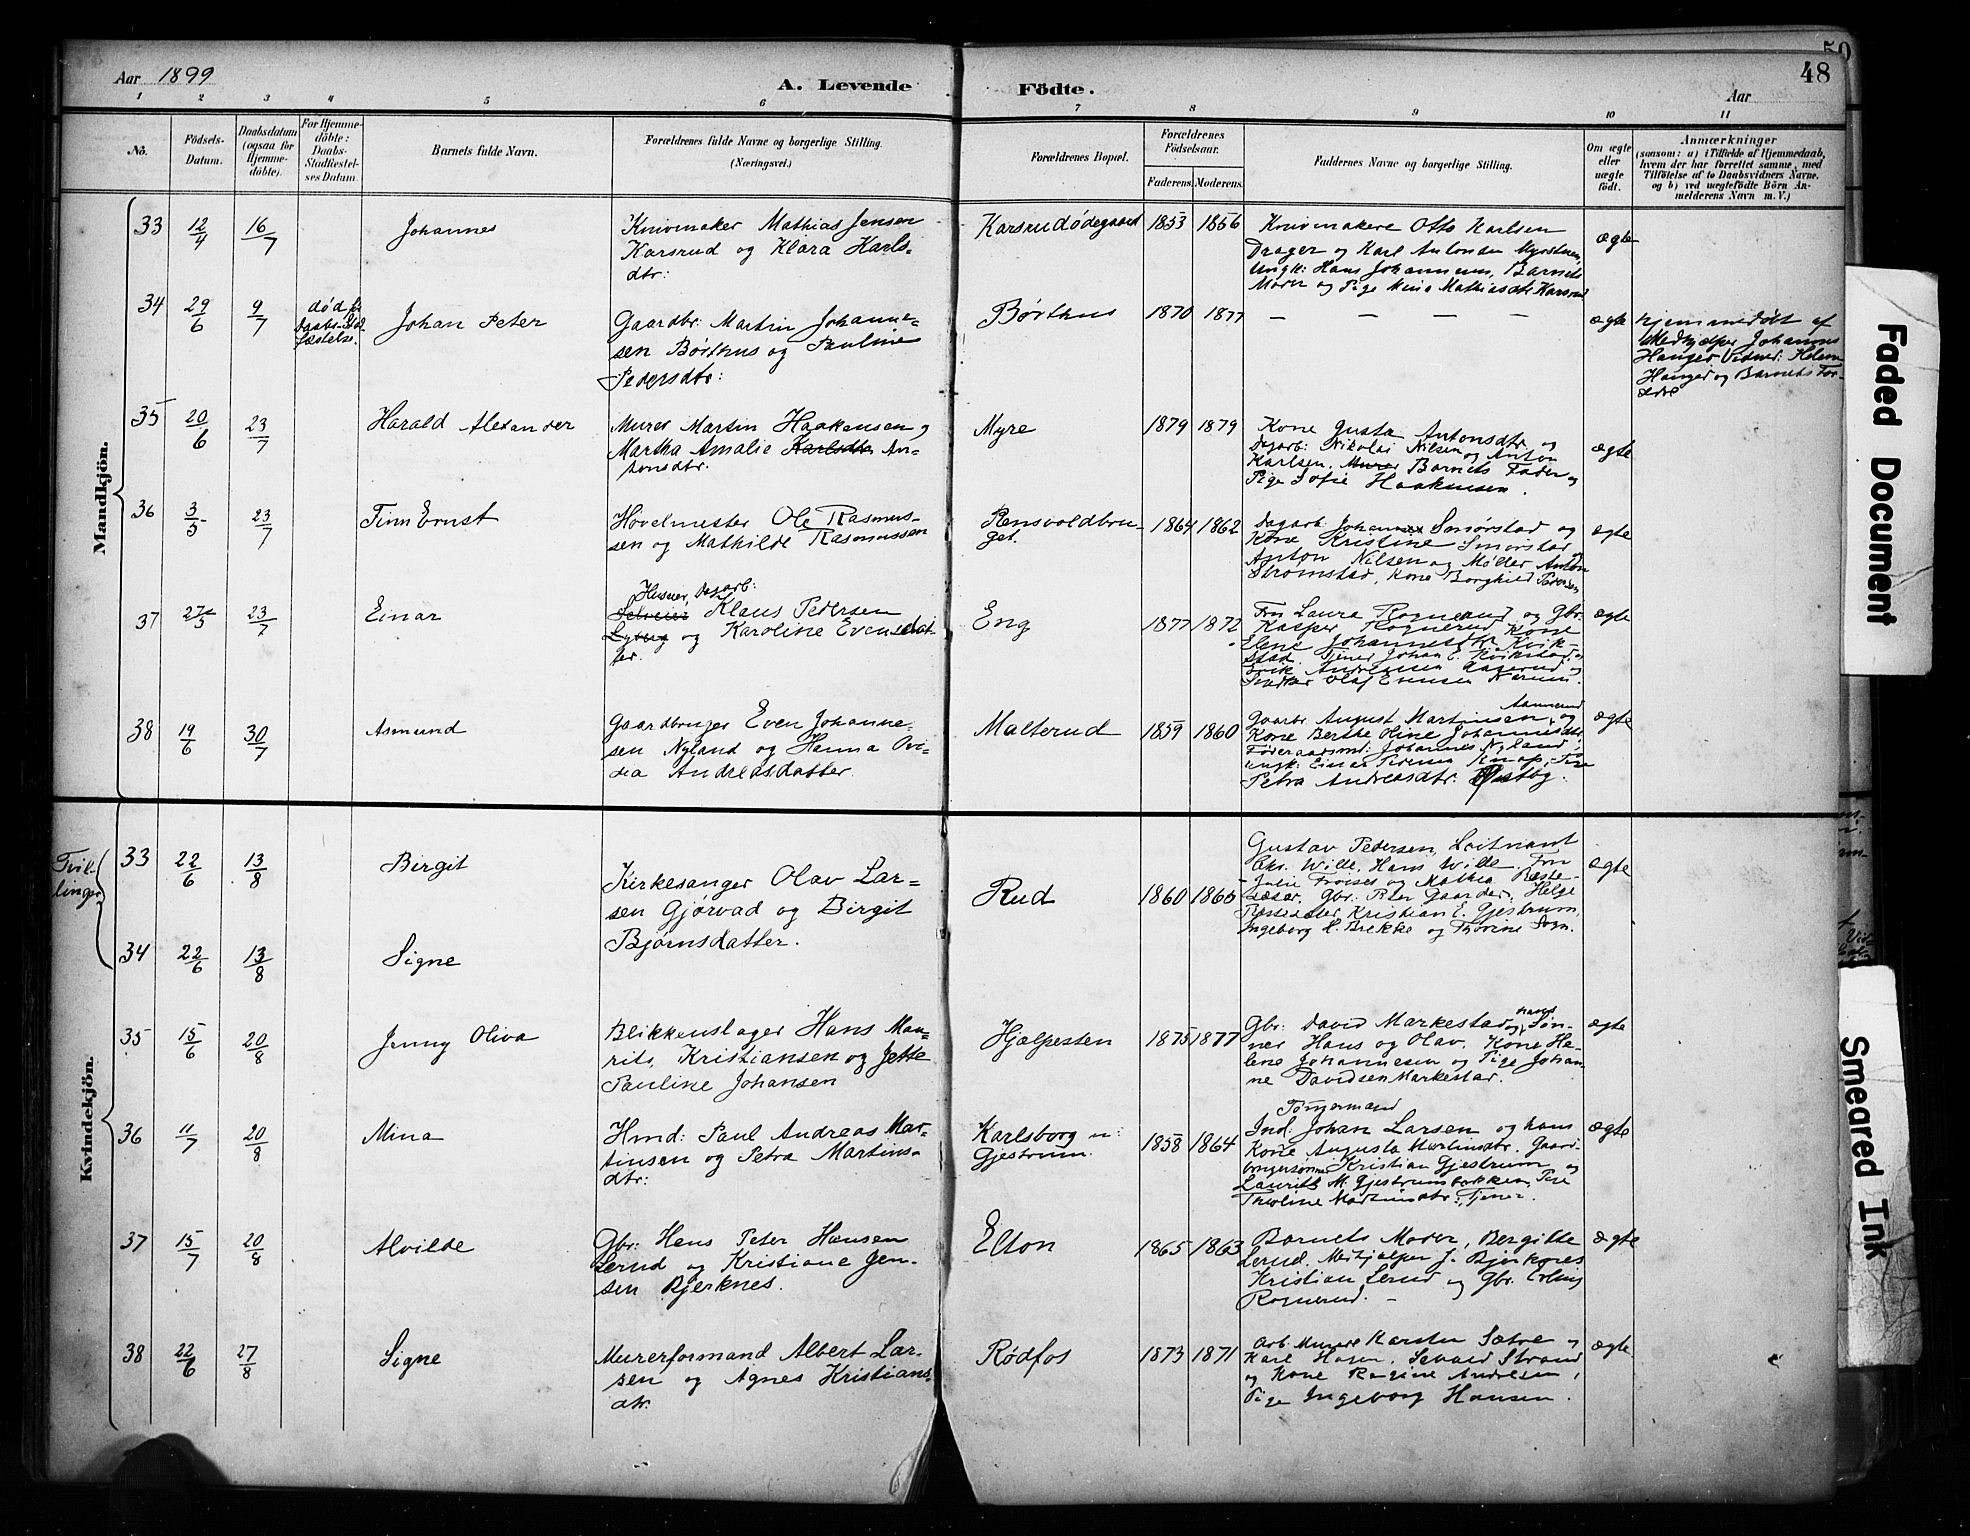 Aar 1899
A. Levende Födte.
Aar
50
48
1 2 3 4 5 6 7 8 9 10 11
No.
Födsels-
Datum.
Daabsdatum
(ogsaa for
Hjemme-
döbte).
For Hjemme-
döbte:
Daabs-
Stadfæstel-
ses Datum.
Barnets fulde Navn.
Forældrenes fulde Navne og borgerlige Stilling.
(Næringsvei.)
Forældrenes Bopæl.
Forældrenes
Födselsaar.
Faderens. Moderens.
Faddernes Navne og borgerlige Stilling.
Om ægte
eller
uægte
födt.
Anmærkninger
(saasom: a) i Tilfælde af Hjemmedaab,
hvem der har forrettet samme, med
Tilföielse af to Daabsvidners Navne.
og b) ved uægtefödte Börn An-
melderens Navn m. V.)
Mandkjön.
33 12/4 16/7 Johannes
Knivmaker Mathias Jensen
Karsrud og Klara Karls-
dtr:
Karsrudødegaard 1853 1856
Knivmakere Otto Karlsen
Drager og Karl Antonsen
Ungk: Hans Johannesen, Barnets
Moder og Pige Mina Mathiasdtr Karsrud
ægte
34 29/6 9/7 død før
Daabs-Stad
fæstelse.
Johan Peter
Gaardbr: Martin Johanne-
sen Børthus og Pauline
Pedersdtr:
Børthus 1870 1877
— — — — —
ægte
Hjemmedøbt af
Medhjælper Johannes
Hanger Vidner: Helene
Hanger og Barnets For-
ældre
35 20/6 23/7 Harald Alexander
Murer Martin Haakensen og
Martha Amalie Karlsdtr An-
tonsdtr.
Myre 1879 1879
Kone Gusta Antonsdtr og
Dagarb: Nikolai Nilsen og Anton
Karlsen, Murer Barnets Fader og
Pige Sofie Haakensen.
ægte
36 3/5 23/7 Finn Ernst
Høvelmester Ole Rasmus-
sen og Mathilde Rasmussen
Rensvoldbru-
get. 1864 1862
Dagarb. Johannes Smørstad og
Kone Kristine Smørstad
Anton Nilsen og Møller Anton
Strømstad, Kone Borghild Pedersen
ægte
37 27/5 23/7 Einar
Husmer, Dagarb:
Selveier Klaus Pedersen
Nyberg og Karoline Evensdat-
ter.
Eng 1877 1872
Fru Laura Rognerud og Gbr.
Kasper Rognerud, Kone
Elene Johannesdtr Kvik-
stad. Tjener Johan E. Kvikstad,
Erik Andreasen Aaserud,
Snedker Olaf Evensen Narum.
ægte
38 19/6 30/7 Asmund
Gaardbruger Even Johanne-
sen Nyland og Hanna Ovi-
dia Andreasdatter.
Malterud 1859 1860
Gaarbr August Martinsen, og
Kone Berthe Oline Johannesdtr
Føderaadsmd: Johannes Nyland,
Ungk: Einar Pedersen Knap, Pige
Petra Andreasdtr: Østby
ægte
Kvindekjön.
Tvil-
linger
33 22/6 13/8 Birgit
Kirkesanger Olav Lar-
sen Gjørvad og Birgit
Bjørnsdatter.
Rud 1860 1865
Gustav Pedersen, Loitnant
Chr. Wille, Hans Wille, Fru
Julie Froises og Mathea Reste-
sæter, Gbr. Peter Gaarder, Helge
Restesæter, Kristian E. Gjestrum,
Ingeborg L. Brekke og Thorine Sogn.
ægte
34 22/6 13/8 Signe
35 15/6 20/8 Jenny Oliva
Blikkenslager Hans Mau-
ritz Kristiansen og Jette
Pauline Johansen
Hjælpesten 1875 1877
Gbr: David Markestad og hans Søn-
ner Hans og Olav, Kone He-
lene Johannesen og Pige Johan-
ne Davidsen Markestad.
ægte
36 11/7 20/8 Mina
Hmd: Paul Andreas Mar-
tinsen og Petra Martins-
dtr:
Karlsborg u:
Gjestrum. 1858 1864
Tømmermand
Ind. Johan Larsen og hans
Kone Augusta Martinsdtr. Gaard-
brugersønner Kristian Gjestrum og
Laurits M. Gjestrumsbakken, Pige
Theoline Martinsdtr., Tjener.
ægte
37 15/7 20/8 Alvilde
Gbr: Hans Peter Hansen
Lerud og Kristiane Jen-
sen Bjerknes.
Elton 1865 1863
Barnets Moder, Bergitte
Lerud, Medhjælper J. Bjerknes
Kristian Lerud og Gbr. Erling
Rognerud. —
ægte
38 22/6 27/8 Signe
Murerformand Albert Lar-
sen og Agnes Kristians-
dtr.
Rødfos 1873 1871
Arb. Murere Karsten Sætre og
Karl Hagen, Sevald Strand
og Kone Regine Andresen,
Pige Ingeborg Hansen.
ægte
Faded Document
Smeared Ink